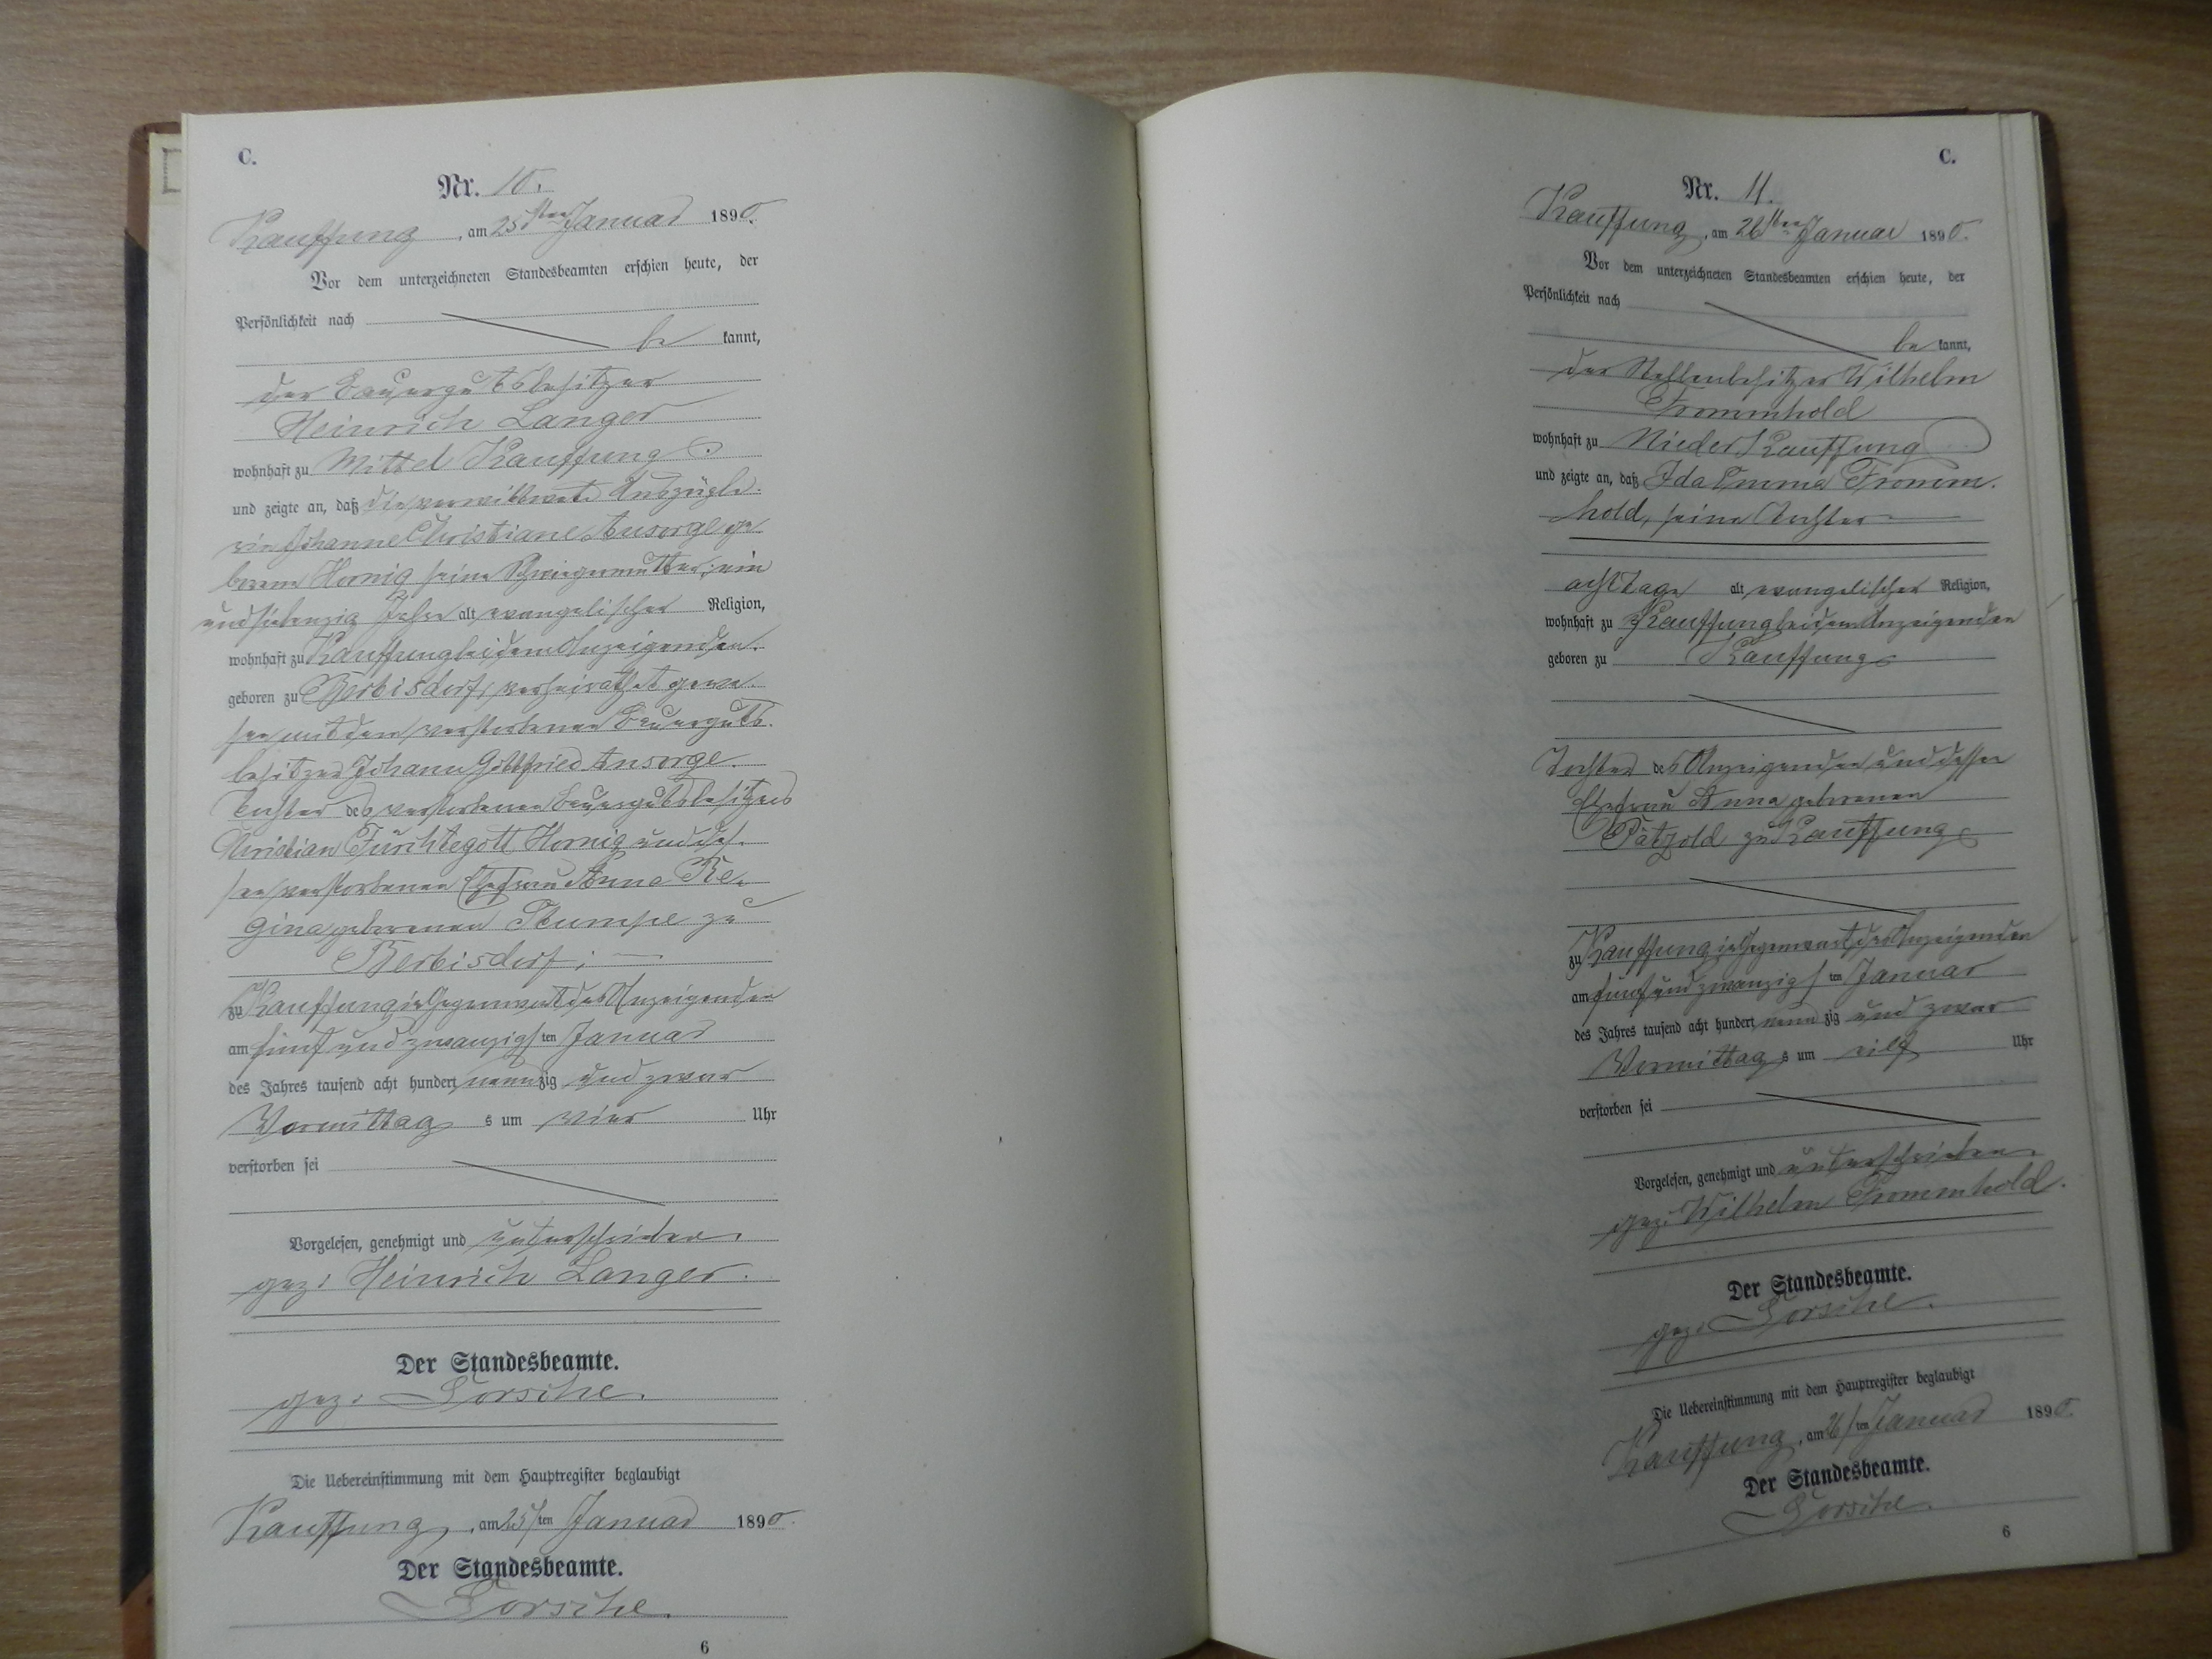 C.
Nr. 10.
Kauffung, am 25sten Januar 1890.
Vor dem unterzeichneten Standesbeamten erschien heute, der
Persönlichkeit nach
be kannt,
der Bauergutsbesitzer
Heinrich Langer
wohnhaft zu Mittel Kauffung
und zeigte an, daß die verwittwete Auszügle-
rin Johanne Christiane Ansorge ge-
borene Hornig seine Schwiegermutter; ein
und siebenzig Jahre alt, evangelischer Religion,
wohnhaft zu Kauffung bei dem Anzeigenden.
geboren zu Berbisdorf, verheirathet gewe-
sen mit dem verstorbenen Bauerguts-
besitzer Johann Gottfried Ansorge.
Tochter des verstorbenen Bauergutsbesitzers
Christian Fürchtegott Hornig und des-
sen verstorbenen Ehefrau Anna Re-
gina geborenen Stumpe zu
Berbisdorf;
zu Kauffung in Gegenwart des Anzeigenden
am fünf und zwanzigsten Januar
des Jahres tausend acht hundert neunzig und zwar
Vormittags um vier Uhr
verstorben sei
Vorgelesen, genehmigt und unterschrieben.
gez: Heinrich Langer.
Der Standesbeamte.
gez:
Die Uebereinstimmung mit dem Hauptregister beglaubigt
Kauffung, am 25sten Januar 1890.
Der Standesbeamte.
6
C.
Nr. 11.
Kauffung, am 26sten Januar 1890.
Vor dem unterzeichneten Standesbeamten erschien heute, der
Persönlichkeit nach
be kannt,
der Stellenbesitzer Wilhelm
Frommhold
wohnhaft zu Nieder Kauffung
und zeigte an, daß Ida Emma Fromm-
hold, seine Tochter
acht Tage alt, evangelischer Religion,
wohnhaft zu Kauffung bei dem Anzeigenden
geboren zu Kauffung
Tochter des Anzeigenden und dessen
Ehefrau Anna geborenen
Pätzold zu Kauffung
zu Kauffung in Gegenwart des Anzeigenden
am fünf und zwanzigsten Januar
des Jahres tausend acht hundert neunzig und zwar
Vormittags um elf Uhr
verstorben sei
Vorgelesen, genehmigt und unterschrieben.
gez: Wilhelm Frommhold.
Der Standesbeamte.
gez:
Die Uebereinstimmung mit dem Hauptregister beglaubigt
Kauffung, am 26sten Januar 1890.
Der Standesbeamte.
6